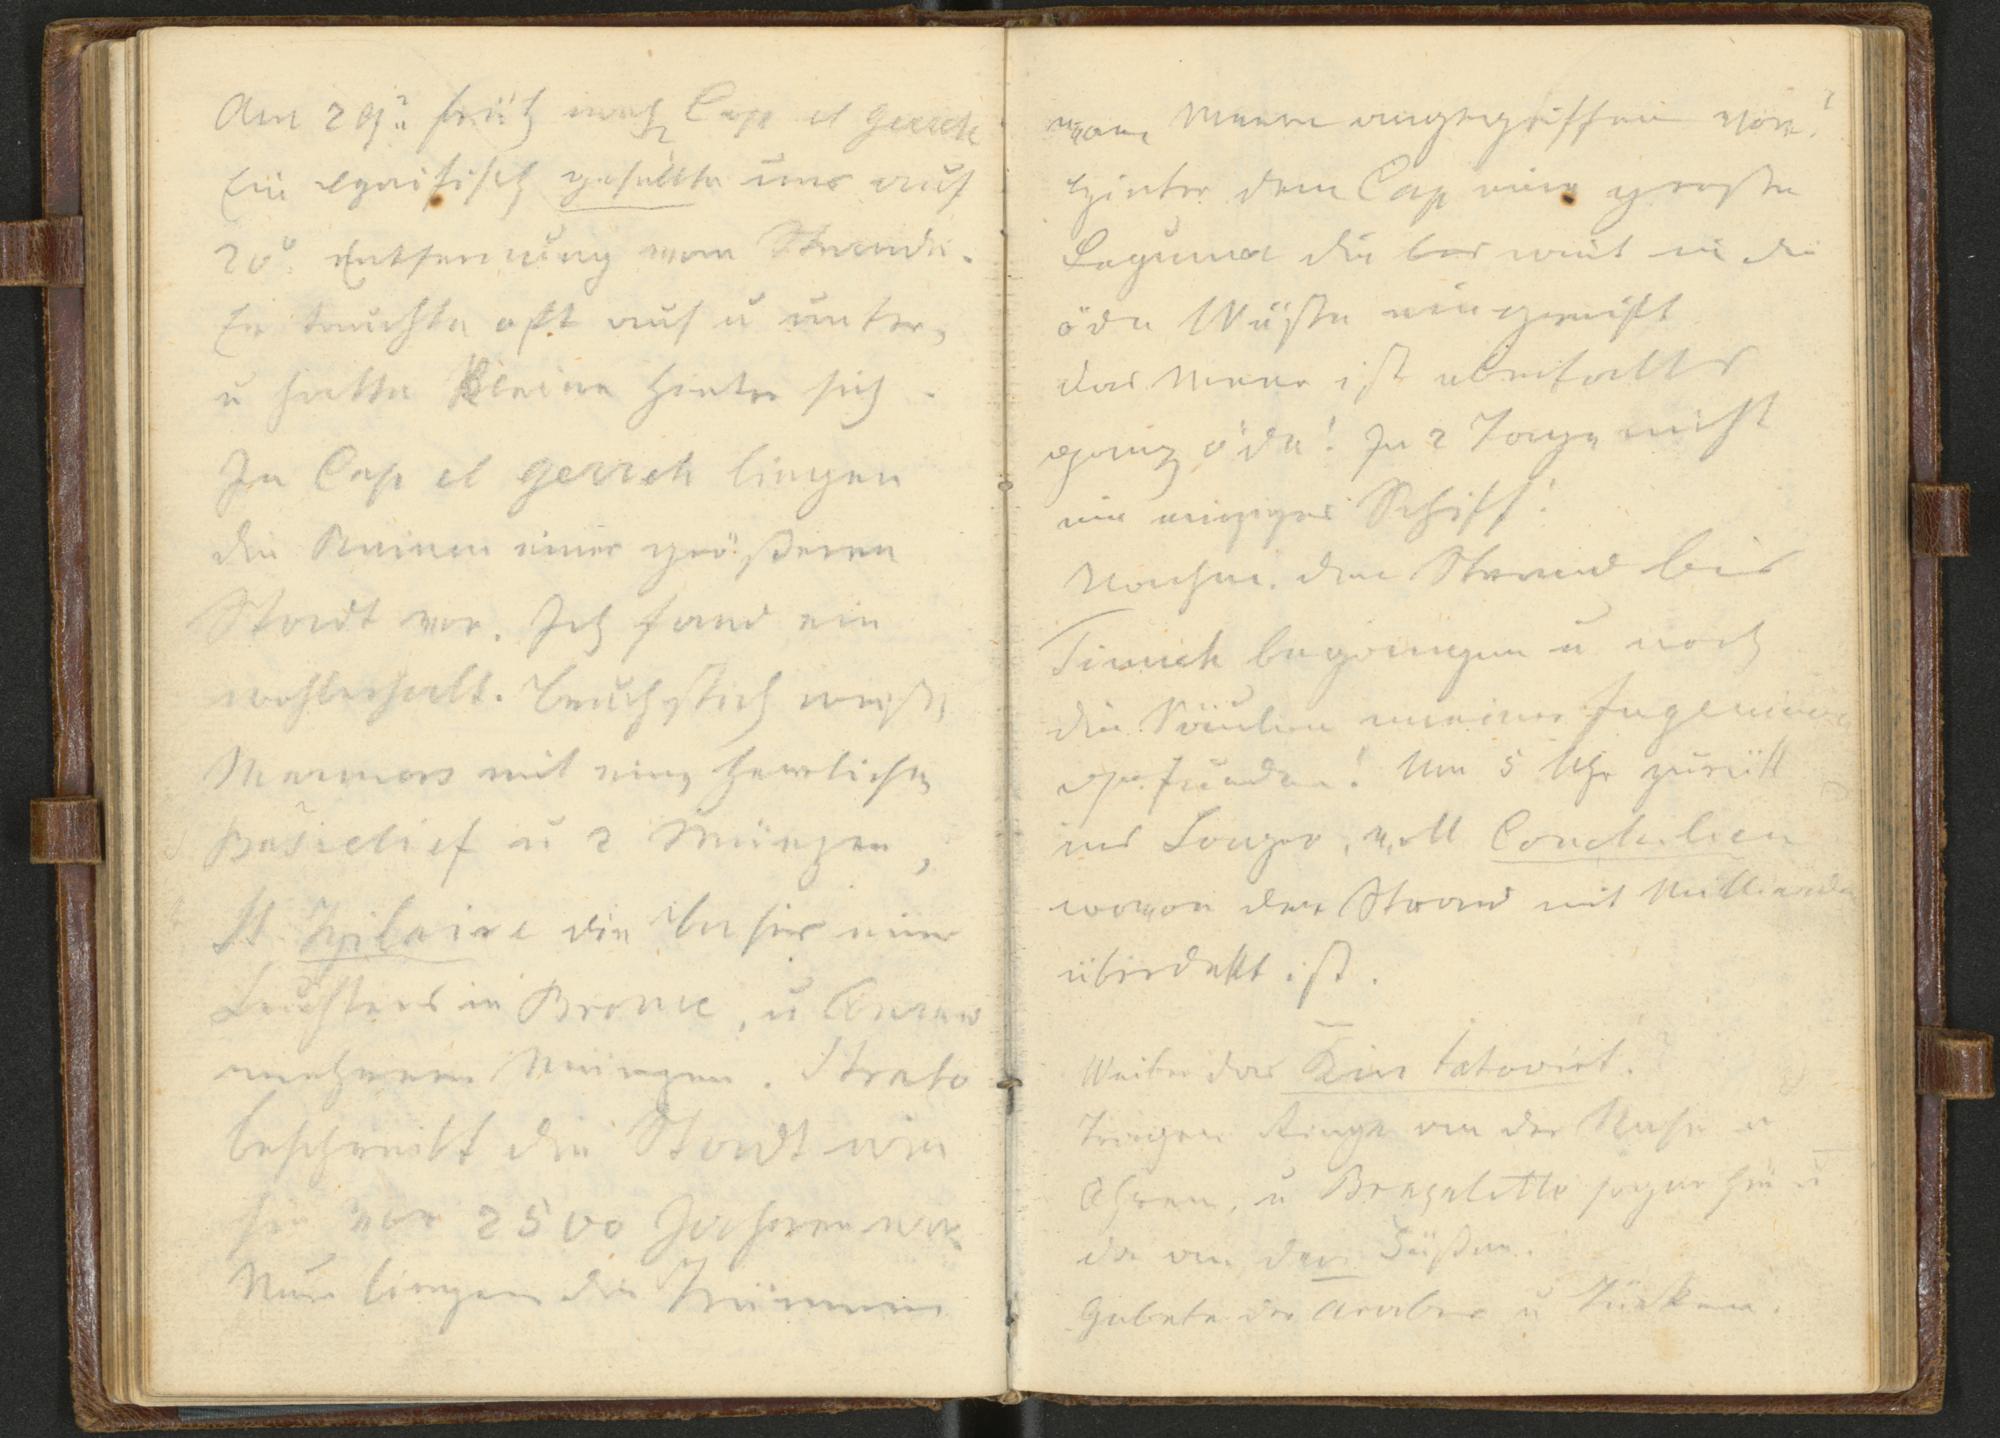 Am 29t. früh nach Cap el Gerreh
Ein Haifisch gesellte uns auf
20° Entfernung vom Strande.
Er tauchte oft auf u unter,
u hatte Kleine hinter sich.
In Cap el Gerreh liegen
die Ruinen einer größeren
Stadt vor. Ich fand ein
wohlerhalt. Bruchstück weiß,
Marmors mit eing herrlichen
Basrelief u 2 Münzen,
St. Hilaire die Basis eines
Leuchters in Bronce, u
mehrere Münzen. Strabo
beschreibt die Stadt wie
sie vor 2500 Jahren war
Nun liegen die Trümmer
vom Meere angegriffen vor!
Hinter dem Cap eine große
Laguna die weit in die
öde Wüste eingreift
das Meer ist ebenfalls
ganz öde! In 2 Tage nicht
ein einziges Schiff!
Nachm. den Strand bis
Tineh begangen u noch
die Säulen meines
gefunden! Um 5 Uhr zurükk
ins Lager, voll Conchilien
wovon der Strand mit Milliarden
überdekkt ist.
Weiber das Kin tatovirt.
Tragen Ringe an der Nase u
Ohren, u Brazelette sogar hie u
da an den Füßen.
Gebete der Araber u Türken.